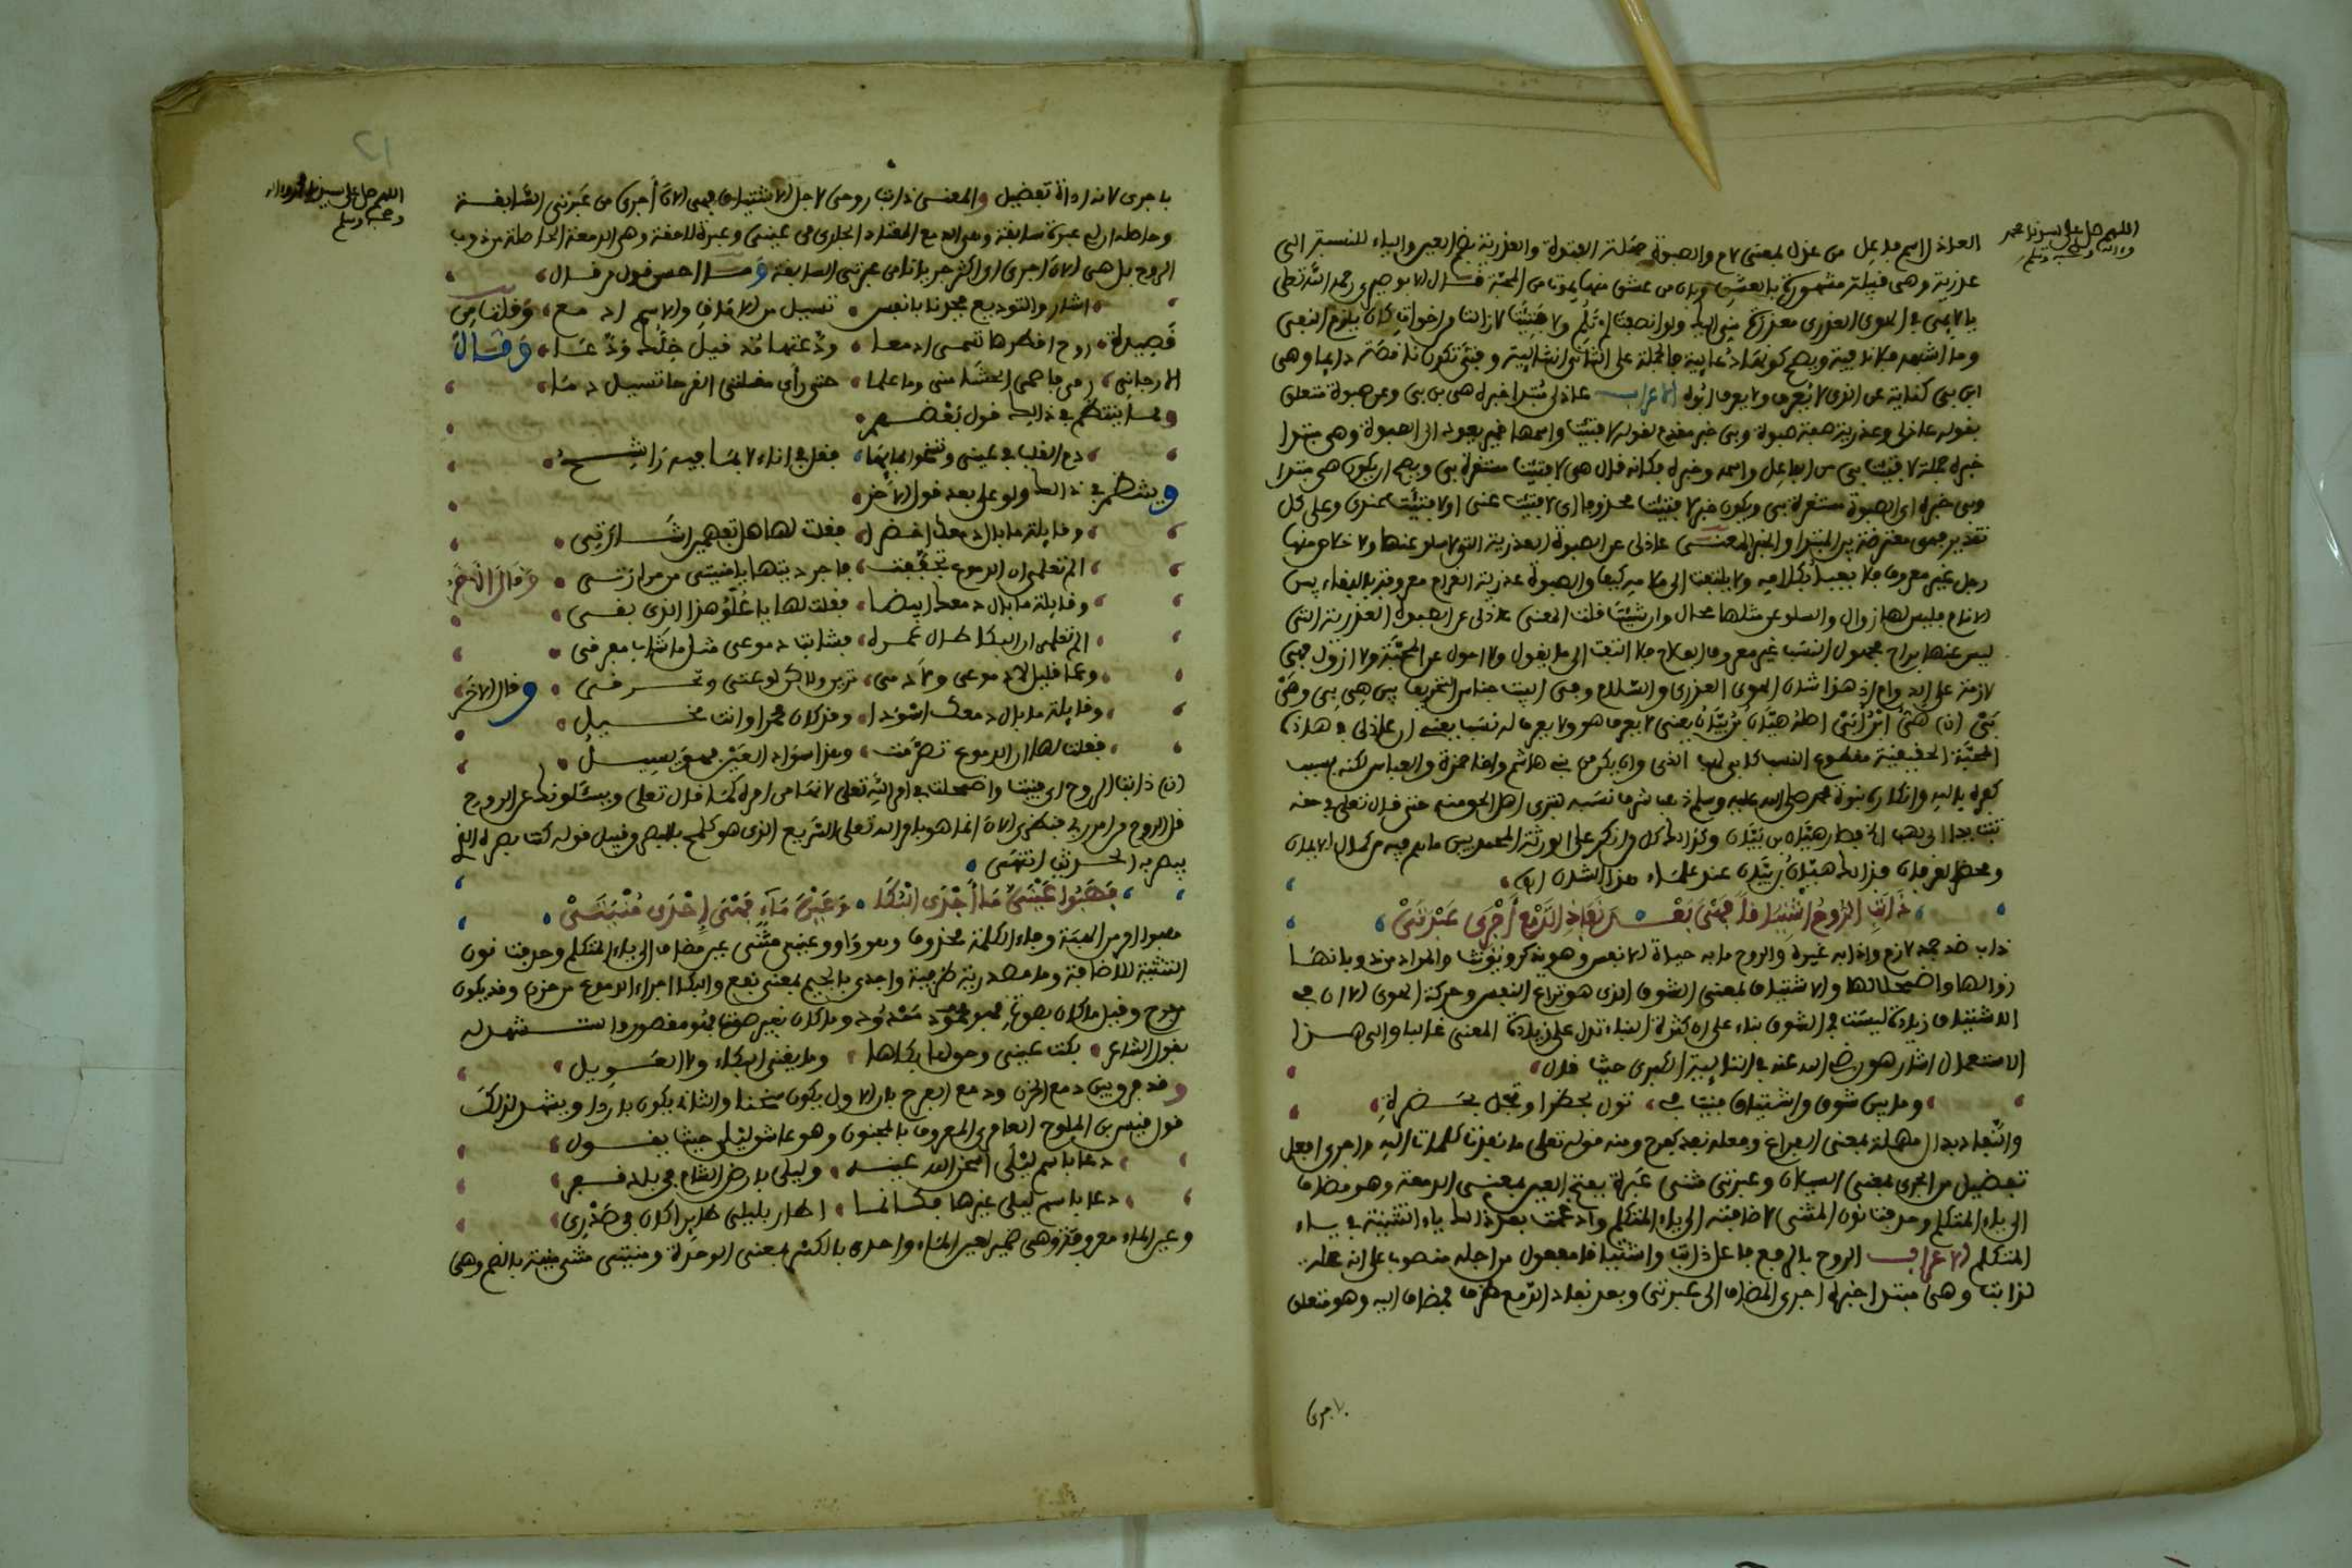 اللهم صل على سيدنا محمد
وآله وصحبه وسلم
العاذل اسم فاعل من عذل بمعنى لام والصبوة جهلة الفتوة والعذرية بضم العين والياء للنسبة الى
عذرية وهى قبيلة مشهورة بالعشق وبان من عشق منها يموت من المحبة قال الابوصيري رحمه الله تعلى
يا لايمى في الهوى العذرى معذرة منى اليك ولو انصفت لم تلم ولا فتئت لا زالت من اخوات كان يلزم النفى
وما اشبهه فلا ندبية ويصح كونها دعايية فالجملة على الثانى انشائية وفتئ تكون ناقصة دايما وهى
ابن بى كناية عن الذى لا يعرف ولا يعرف ابوه الاعراب عاذلى مبتدا خبره هى بن بى وعن صبوة متعلق
بقوله عاذلى وعذرية صفة صبوة وبى خبر مقدم لقوله لا فتئت واسمها ضمير يعود الى الصبوة وهى مبتدا
خبره جملة لا فتئت بى من الفاعل واسمه وخبره فكانه قال هى لا فتئت مستقرة بى ويصح ان يكون هى مبتدا
وبى خبره اى الصبوة مستقرة بى ويكون خبر لا فتئت محذوفا اى لا فتئت عنى او لا فتئت عندى وعلى كل
تقدير فهى معترضة بين المبتدا والخبر المعنى عاذلى عن الصبوة العذرية التى لا سلو عنها ولا خلاص منها
رجل غير معروف فلا يعبا بكلامه ولا يلتفت الى ملامه كيف والصبوة عذرية الغرام معروفة بالبقاء بين
الانام فليس لها زوال والسلو عن مثلها محال وان شئت قلت المعنى عاذلى عن الصبوة العذرية التى
ليس عنها براح مجهول النسب غير معروف بالفلاح فلا التفت الى ما يقول ولا احول عن المحبة ولا ازول فهى
لازمة على الدوام اذ هذا شان الهوى العذرى والسلام وفى البيت جناس التحريف بين هى بى وهى
بى (ن) هى ابن بى اصله هيان بن بيان يعنى لا يعرف هو ولا يعرف له نسب يعنى ان عاذلى في هاذه
المحبة الحقيقية مقطوع النسب كابى لهب الذى وان يكن من بنى هاشم واخا حمزة والعباس لكنه بسبب
كفره بالله وانكاره نبوة محمد صلى الله عليه وسلم ذهب شرف نسبه بترى اهل الحق منه حتى قال تعلى في حقه
تبت يدا ابى لهب الخ فصار هيان بن بيان وكذالك كل من انكر على الورثة المحمديين ما هم فيه من كمال الايمان
ومحض العرفان فذالك هيان بن بيان عند علماء هذا الشان اهـ
ذابت الروح اشتياقا فهى بعد نفاذ الدمع أجرى عبرتى
ذاب ضد جمد لازم واذابه غيره والروح ما به حياة الانفس وهو يذكر ويؤنث والمراد من ذوبانها
زوالها واضمحلالها والاشتياق بمعنى الشوق الذى هو نزاع النفس وحركة الهوى الا ان في
الاشتياق زيادة ليست في الشوق بناء على ان كثرة البناء تدل على زيادة المعنى غالبا والى هذا
الاستعمال اشار هو رضى الله عنه في التائية الكبرى حيث قال
وما بين شوق واشتياق فنيت في تول بحظر او تجل بحضرة
والنفاد بدال مهملة بمعنى الفراغ وفعله نفد كفرح ومنه قوله تعلى ما نفدت كلمات الله واجرى افعل
تفضيل من الجرى بمعنى السيلان وعبرتى مثنى عبرة بفتح العين بمعنى الدمعة وهو مضاف
الى ياء المتكلم وحذفت نون المثنى لاضافته الى ياء المتكلم وادغمت بعد ذالك ياء التثنية في ياء
المتكلم الاعراب الروح بالرفع فاعل ذابت واشتياقا مفعول من اجله منصوب على انه علة
لذابت وهى مبتدا خبره اجرى المضاف الى عبرتى وبعد نفاد الدمع ظرف فمضاف اليه وهو متعلق
باجرى
اللهم صل على سيدنا محمد وآله
وصحبه وسلم
باجرى لانه اداة تفضيل والمعنى ذابت روحى لاجل الاشتياق فهى الان أجرى من عبرتى السابقة
وحاصله ان لى عبرة سابقة وهى الدمع المعتاد الجارى من عينى وعبرة لاحقة وهى الدمعة الحاصلة من ذوب
الروح بل هى الان اجرى اى اكثر جريانا من عبرتى السابقة وما احسن قول من قال
اشار والتوديع فجدنا بانفس تسيل من الاماق والاسم ادمع وقلت من
قصيدة روح افكرها تهمى ادمعا ودعتها مذ قيل خلك ودعا وقال
الارجانى رمى فاصمى الحشا منى وما علما حتى رأى مقلتى القرحا تسيل دما
ومما ينتظم في ذالك قول بعضهم
دم القلب في عينى وتنظرا مابها فقل في اناء لا بما فيه راشح
وينظم في ذالك ولو على بعد قول الاخر
وقايلة ما بال دمعك اخضرا فقلت لها هل تفهمين اشارتى
الم تعلمى ان الدموع تجففت فاجريتها يا منيتى من مرارتى وقال الاخر
وقايلة ما بال دمعك ابيضا فقلت لها يا علو هذا الذى بقى
الم تعلمى ان البكا طال عمره فشابت دموعى مثل ما شاب مفرقى
وعما قليل لا دموعى ولا دمى تزين ولاكن لوعتى وتحرقى وقال الاخر
وقايلة ما بال دمعك اسودا وقد كان محمرا وانت نحيل
فقلت لها ان الدموع تصرمت وهذا سواد العين فهو يسيل
(ن) ذابت الروح اى فنيت واضمحلت في امر الله تعلى لانها من امره كما قال تعلى ويسئلونك عن الروح
قل الروح من امر ربى فتظهر الان انما هو بامر الله تعلى السريع الذى هو كلمح بالبصر وقيل قوله كنت بصره الذى
يبصر به الحديث انتهى
فهبوا عينى ما أجدى البكا عين ماء فهى إحدى منيتى
فهبوا امر من الهبة وفاء الكلمة محذوف وهو واو وعينى مثنى عين مضاف الى ياء المتكلم وحذفت نون
التثنية للاضافة وما مصدرية ظرفية واجدى بالجيم بمعنى نفع والبكا اجراء الدموع من حزن وقد يكون
من فرح وقيل ما كان بصوت فهو ممدود وما كان بغير صوت فهو مقصور واستشهد له
بقول الشاعر بكت عينى وحق لها بكاها وما يغنى البكاء ولا العويل
وقد فرق بين دمع الحزن ودمع الفرح بان الاول يكون سخنا والثانى يكون باردا ويشهد لذلك
قول قيس بن الملوح العامرى المعروف بالمجنون وهو عاشق ليلى حيث يقول
دعا باسم ليلى اسخن الله عينه وليلى بارض الشام في بلد قفر
دعا باسم ليلى غيرها فكانما اطار بليلى طايرا كان فى صدرى
وعين الماء معروفة وهى ضمير لعين الماء واحدى بالكسر بمعنى الوحدة ومنيتى مثنى منية بالضم وهى